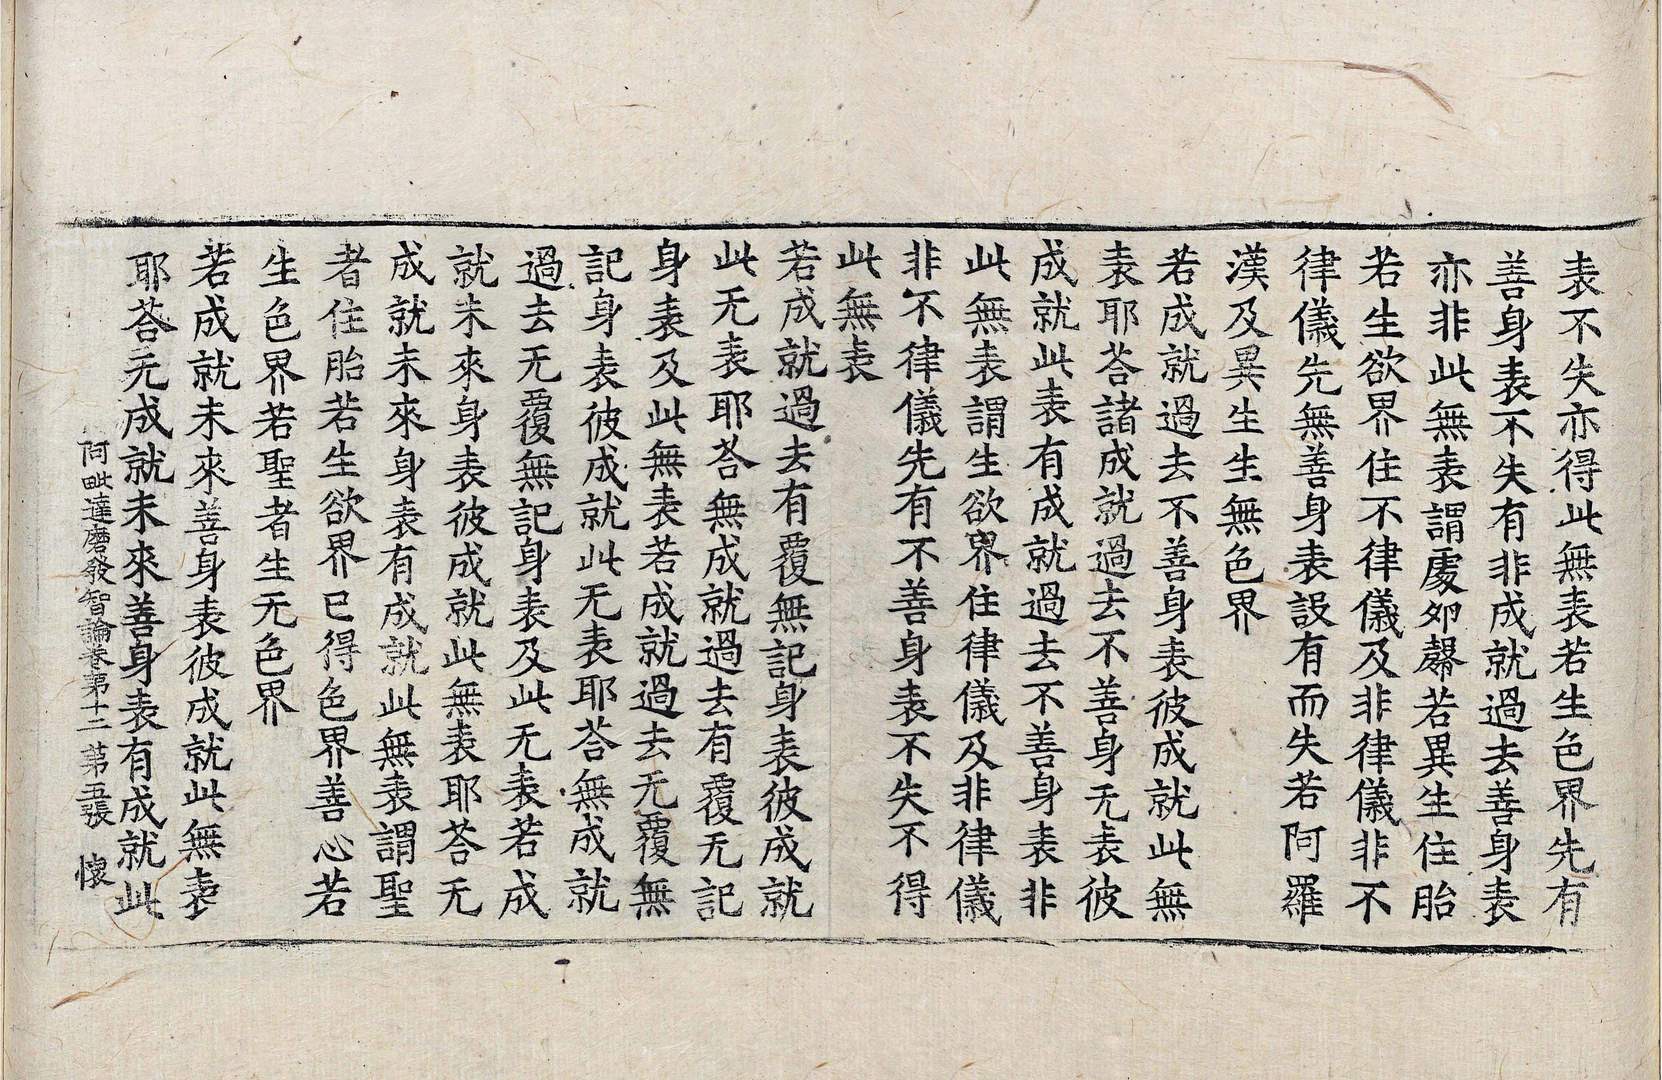 表不失亦得此無表若生色界先有
善身表不失有非成就過去善身表
亦非此無表謂處卵㲉若異生住胎
若生欲界住不律儀及非律儀非不
律儀先無善身表設有而失若阿羅
漢及異生生無色界
若成就過去不善身表彼成就此無
表耶荅諸成就過去不善身无表彼
成就此表有成就過去不善身表非
此無表謂生欲界住律儀及非律儀
非不律儀先有不善身表不失不得
此無表
若成就過去有覆無記身表彼成就
此无表耶荅無成就過去有覆无記
身表及此無表若成就過去无覆無
記身表彼成就此无表耶荅無成就
過去无覆無記身表及此无表若成
就未來身表彼成就此無表耶荅无
成就未來身表有成就此無表謂聖
者住胎若生欲界已得色界善心若
生色界若聖者生无色界
若成就未來善身表彼成就此無表
耶荅无成就未來善身表有成就此
阿毗達磨發智論卷苐十二 苐五張 懷